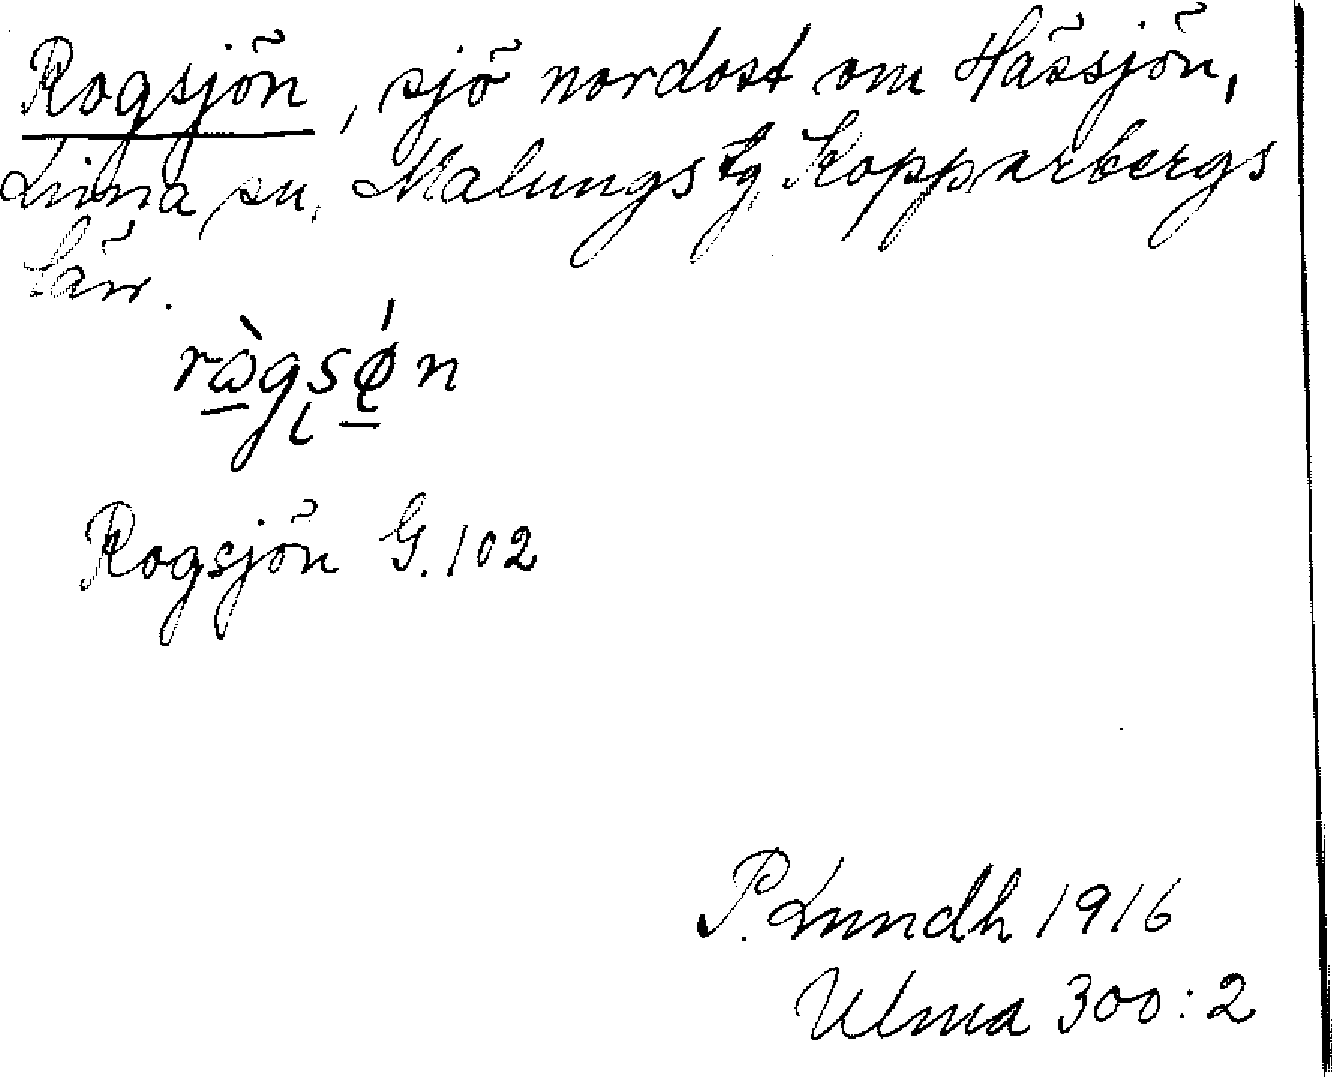 Rogsjön, sjö nordost om Hässjön,
Lima sn, Malungs tg Kopparbergs
län.
Rogsjön G. 102
P. Lundh 1916
Ulma 300:2